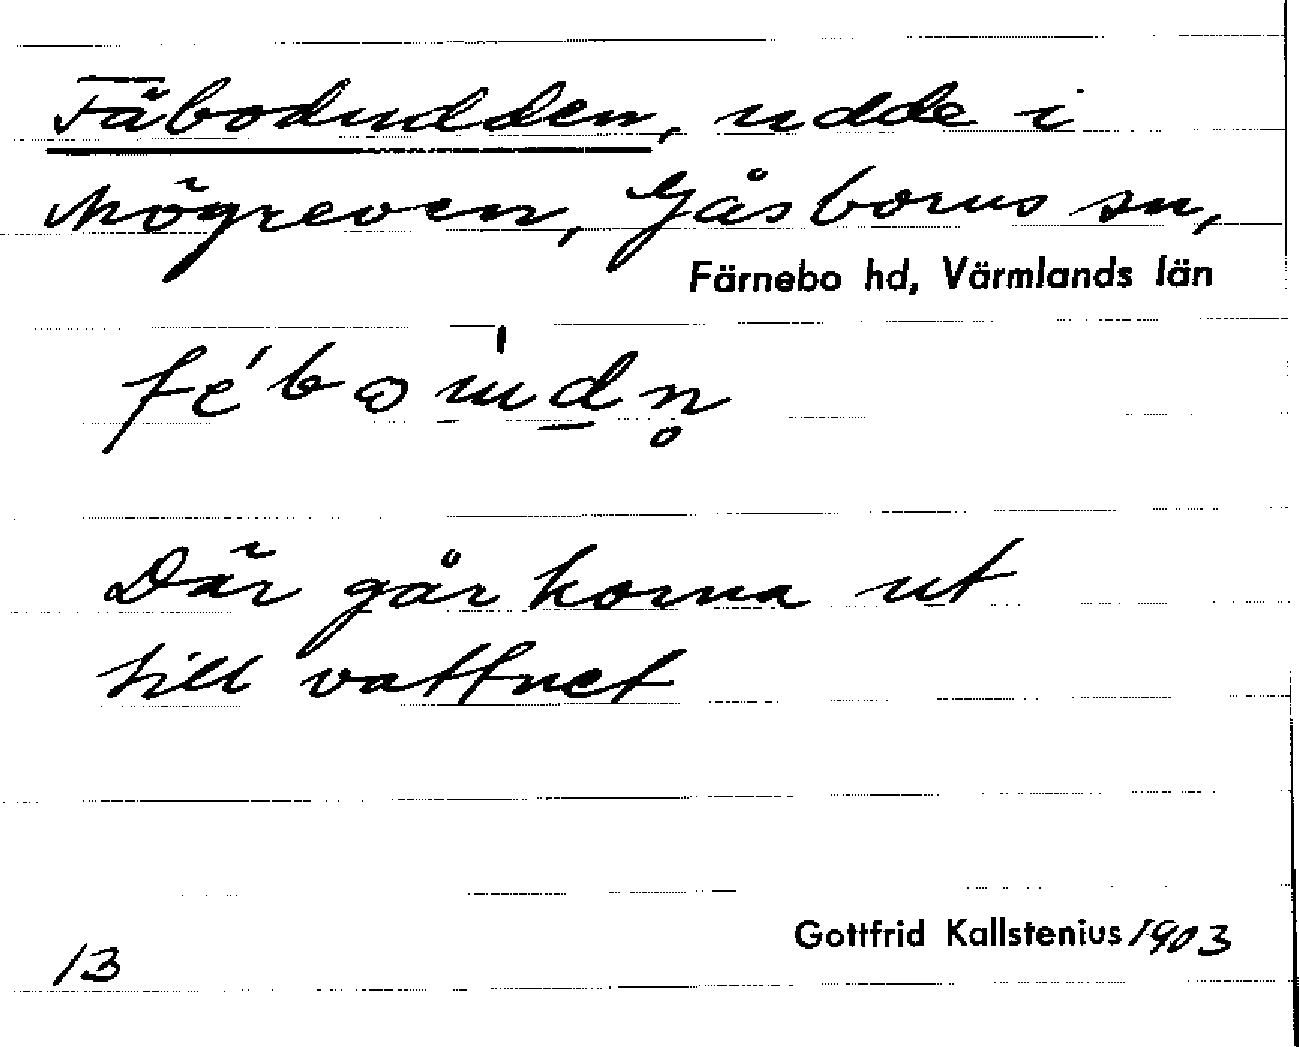 Fäbodudden, udde i
Mögreven, Gåsborns sn,
Färnebo hd, Värmlands län
Där går korna ut
till vattnet
Gottfrid Kallstenius 1903
13